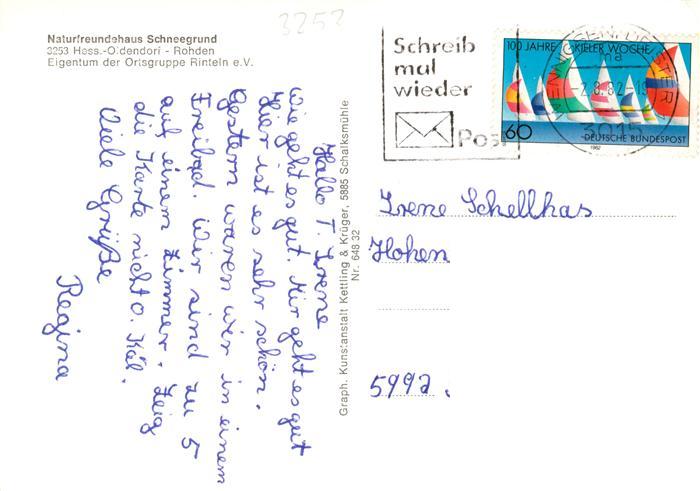 3252
Naturfreundehaus Schneegrund
3253 Hess.-Oldendorf - Rohden
Eigentum der Ortsgruppe Rinteln e.V.
Hallo T. Irene
Wie geht es gut. Mir geht es gut
Hier ist es sehr schön.
Gestern waren wir in einem
Freibad. Wir sind zu 5
auf einem Zimmer. Zeig
die Karte nicht O. Käl.
Viele Grüße
Regina
Graph. Kunstanstalt Kettling & Krüger, 5885 Schalksmühle
Nr. 648 32
Schreib
mal
wieder
Post
100 JAHRE KIELER WOCHE
60
DEUTSCHE BUNDESPOST
1982
ma
-2.8.82-19
3015
Irene Schellhas
Hohen
5992.